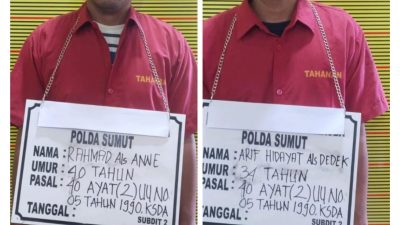 TAHANAN
POLDA SUMUT
NAMA : RAHMAD Als ANNE
UMUR : 40 TAHUN
PASAL : 40 AYAT(2)UU NO
05 TAHUN 1990. KSDA
TANGGAL :
SUBDIT 2
TAHANAN
POLDA SUMUT
NAMA : ARIF HIDAYAT Als DEDEK
UMUR : 34 TAHUN
PASAL : 40 AYAT(2)UU NO
05 TAHUN 1990. KSDA
TANGGAL :
SUBDIT 2